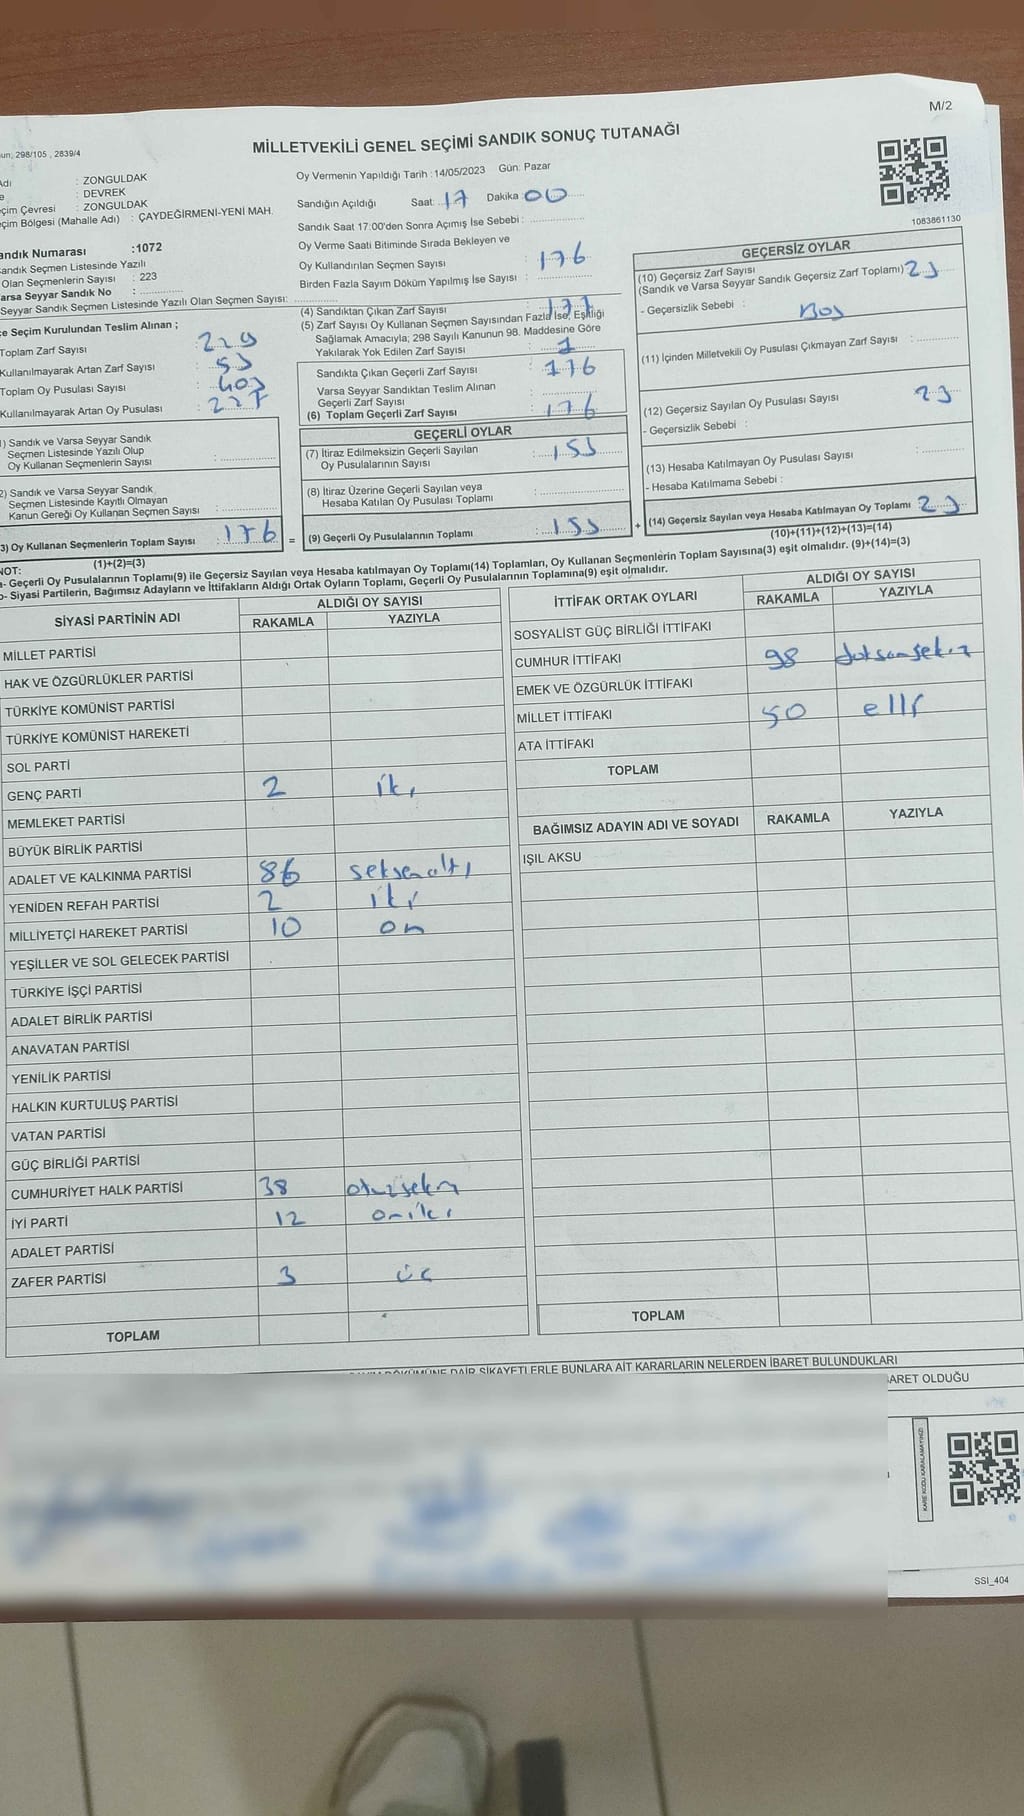 M/2
MİLLETVEKİLİ GENEL SEÇİMİ SANDIK SONUÇ TUTANAĞI
un, 298/105 , 2839/4
Adı : ZONGULDAK
e : DEVREK
çim Çevresi : ZONGULDAK
çim Bölgesi (Mahalle Adı) : ÇAYDEĞİRMENİ-YENİ MAH.
andık Numarası :1072
andık Seçmen Listesinde Yazılı
Olan Seçmenlerin Sayısı : 223
arsa Seyyar Sandık No :
Seyyar Sandık Seçmen Listesinde Yazılı Olan Seçmen Sayısı:
Oy Vermenin Yapıldığı Tarih : 14/05/2023 Gün: Pazar
Sandığın Açıldığı Saat: 17 Dakika: 00
Sandık Saat 17:00'den Sonra Açımış İse Sebebi :
Oy Verme Saati Bitiminde Sırada Bekleyen ve
Oy Kullandırılan Seçmen Sayısı : 176
Birden Fazla Sayım Döküm Yapılmış İse Sayısı :
1083861130
çe Seçim Kurulundan Teslim Alınan ;
Toplam Zarf Sayısı :
Kullanılmayarak Artan Zarf Sayısı : 53
Toplam Oy Pusulası Sayısı : 403
Kullanılmayarak Artan Oy Pusulası : 227
1) Sandık ve Varsa Seyyar Sandık
Seçmen Listesinde Yazılı Olup
Oy Kullanan Seçmenlerin Sayısı :
2) Sandık ve Varsa Seyyar Sandık
Seçmen Listesinde Kayıtlı Olmayan
Kanun Gereği Oy Kullanan Seçmen Sayısı :
3) Oy Kullanan Seçmenlerin Toplam Sayısı : 176 =
(1)+(2)=(3)
(4) Sandıktan Çıkan Zarf Sayısı : 177
(5) Zarf Sayısı Oy Kullanan Seçmen Sayısından Fazla İse, Eşitliği
Sağlamak Amacıyla; 298 Sayılı Kanunun 98. Maddesine Göre
Yakılarak Yok Edilen Zarf Sayısı : 1
Sandıkta Çıkan Geçerli Zarf Sayısı : 176
Varsa Seyyar Sandıktan Teslim Alınan
Geçerli Zarf Sayısı :
(6) Toplam Geçerli Zarf Sayısı : 176
GEÇERLİ OYLAR
(7) İtiraz Edilmeksizin Geçerli Sayılan
Oy Pusulalarının Sayısı : 153
(8) İtiraz Üzerine Geçerli Sayılan veya
Hesaba Katılan Oy Pusulası Toplamı :
(9) Geçerli Oy Pusulalarının Toplamı : 153 +
GEÇERSİZ OYLAR
(10) Geçersiz Zarf Sayısı
(Sandık ve Varsa Seyyar Sandık Geçersiz Zarf Toplamı) : 23
- Geçersizlik Sebebi : Boş
(11) İçinden Milletvekili Oy Pusulası Çıkmayan Zarf Sayısı :
(12) Geçersiz Sayılan Oy Pusulası Sayısı : 23
- Geçersizlik Sebebi :
(13) Hesaba Katılmayan Oy Pusulası Sayısı :
- Hesaba Katılmama Sebebi :
(14) Geçersiz Sayılan veya Hesaba Katılmayan Oy Toplamı : 23
(10)+(11)+(12)+(13)=(14)
NOT:
a- Geçerli Oy Pusulalarının Toplamı(9) ile Geçersiz Sayılan veya Hesaba katılmayan Oy Toplamı(14) Toplamları, Oy Kullanan Seçmenlerin Toplam Sayısına(3) eşit olmalıdır. (9)+(14)=(3)
b- Siyasi Partilerin, Bağımsız Adayların ve İttifakların Aldığı Ortak Oyların Toplamı, Geçerli Oy Pusulalarının Toplamına(9) eşit olmalıdır.
SİYASİ PARTİNİN ADI ALDIĞI OY SAYISI
RAKAMLA YAZIYLA
MİLLET PARTİSİ
HAK VE ÖZGÜRLÜKLER PARTİSİ
TÜRKİYE KOMÜNİST PARTİSİ
TÜRKİYE KOMÜNİST HAREKETİ
SOL PARTİ
GENÇ PARTİ 2 iki
MEMLEKET PARTİSİ
BÜYÜK BİRLİK PARTİSİ
ADALET VE KALKINMA PARTİSİ 86 seksenaltı
YENİDEN REFAH PARTİSİ 2 iki
MİLLİYETÇİ HAREKET PARTİSİ 10 on
YEŞİLLER VE SOL GELECEK PARTİSİ
TÜRKİYE İŞÇİ PARTİSİ
ADALET BİRLİK PARTİSİ
ANAVATAN PARTİSİ
YENİLİK PARTİSİ
HALKIN KURTULUŞ PARTİSİ
VATAN PARTİSİ
GÜÇ BİRLİĞİ PARTİSİ
CUMHURİYET HALK PARTİSİ 38 otuzsekiz
İYİ PARTİ 12 oniki
ADALET PARTİSİ
ZAFER PARTİSİ 3 üç
TOPLAM
İTTİFAK ORTAK OYLARI ALDIĞI OY SAYISI
RAKAMLA YAZIYLA
SOSYALİST GÜÇ BİRLİĞİ İTTİFAKI
CUMHUR İTTİFAKI 98 doksansekiz
EMEK VE ÖZGÜRLÜK İTTİFAKI
MİLLET İTTİFAKI 50 elli
ATA İTTİFAKI
TOPLAM
BAĞIMSIZ ADAYIN ADI VE SOYADI RAKAMLA YAZIYLA
IŞIL AKSU
TOPLAM
DÖKÜMÜNE DAİR ŞİKAYETLERLE BUNLARA AİT KARARLARIN NELERDEN İBARET BULUNDUKLARI
ARET OLDUĞU
KARE KODU KARALAMAYINIZ!
SSI_404